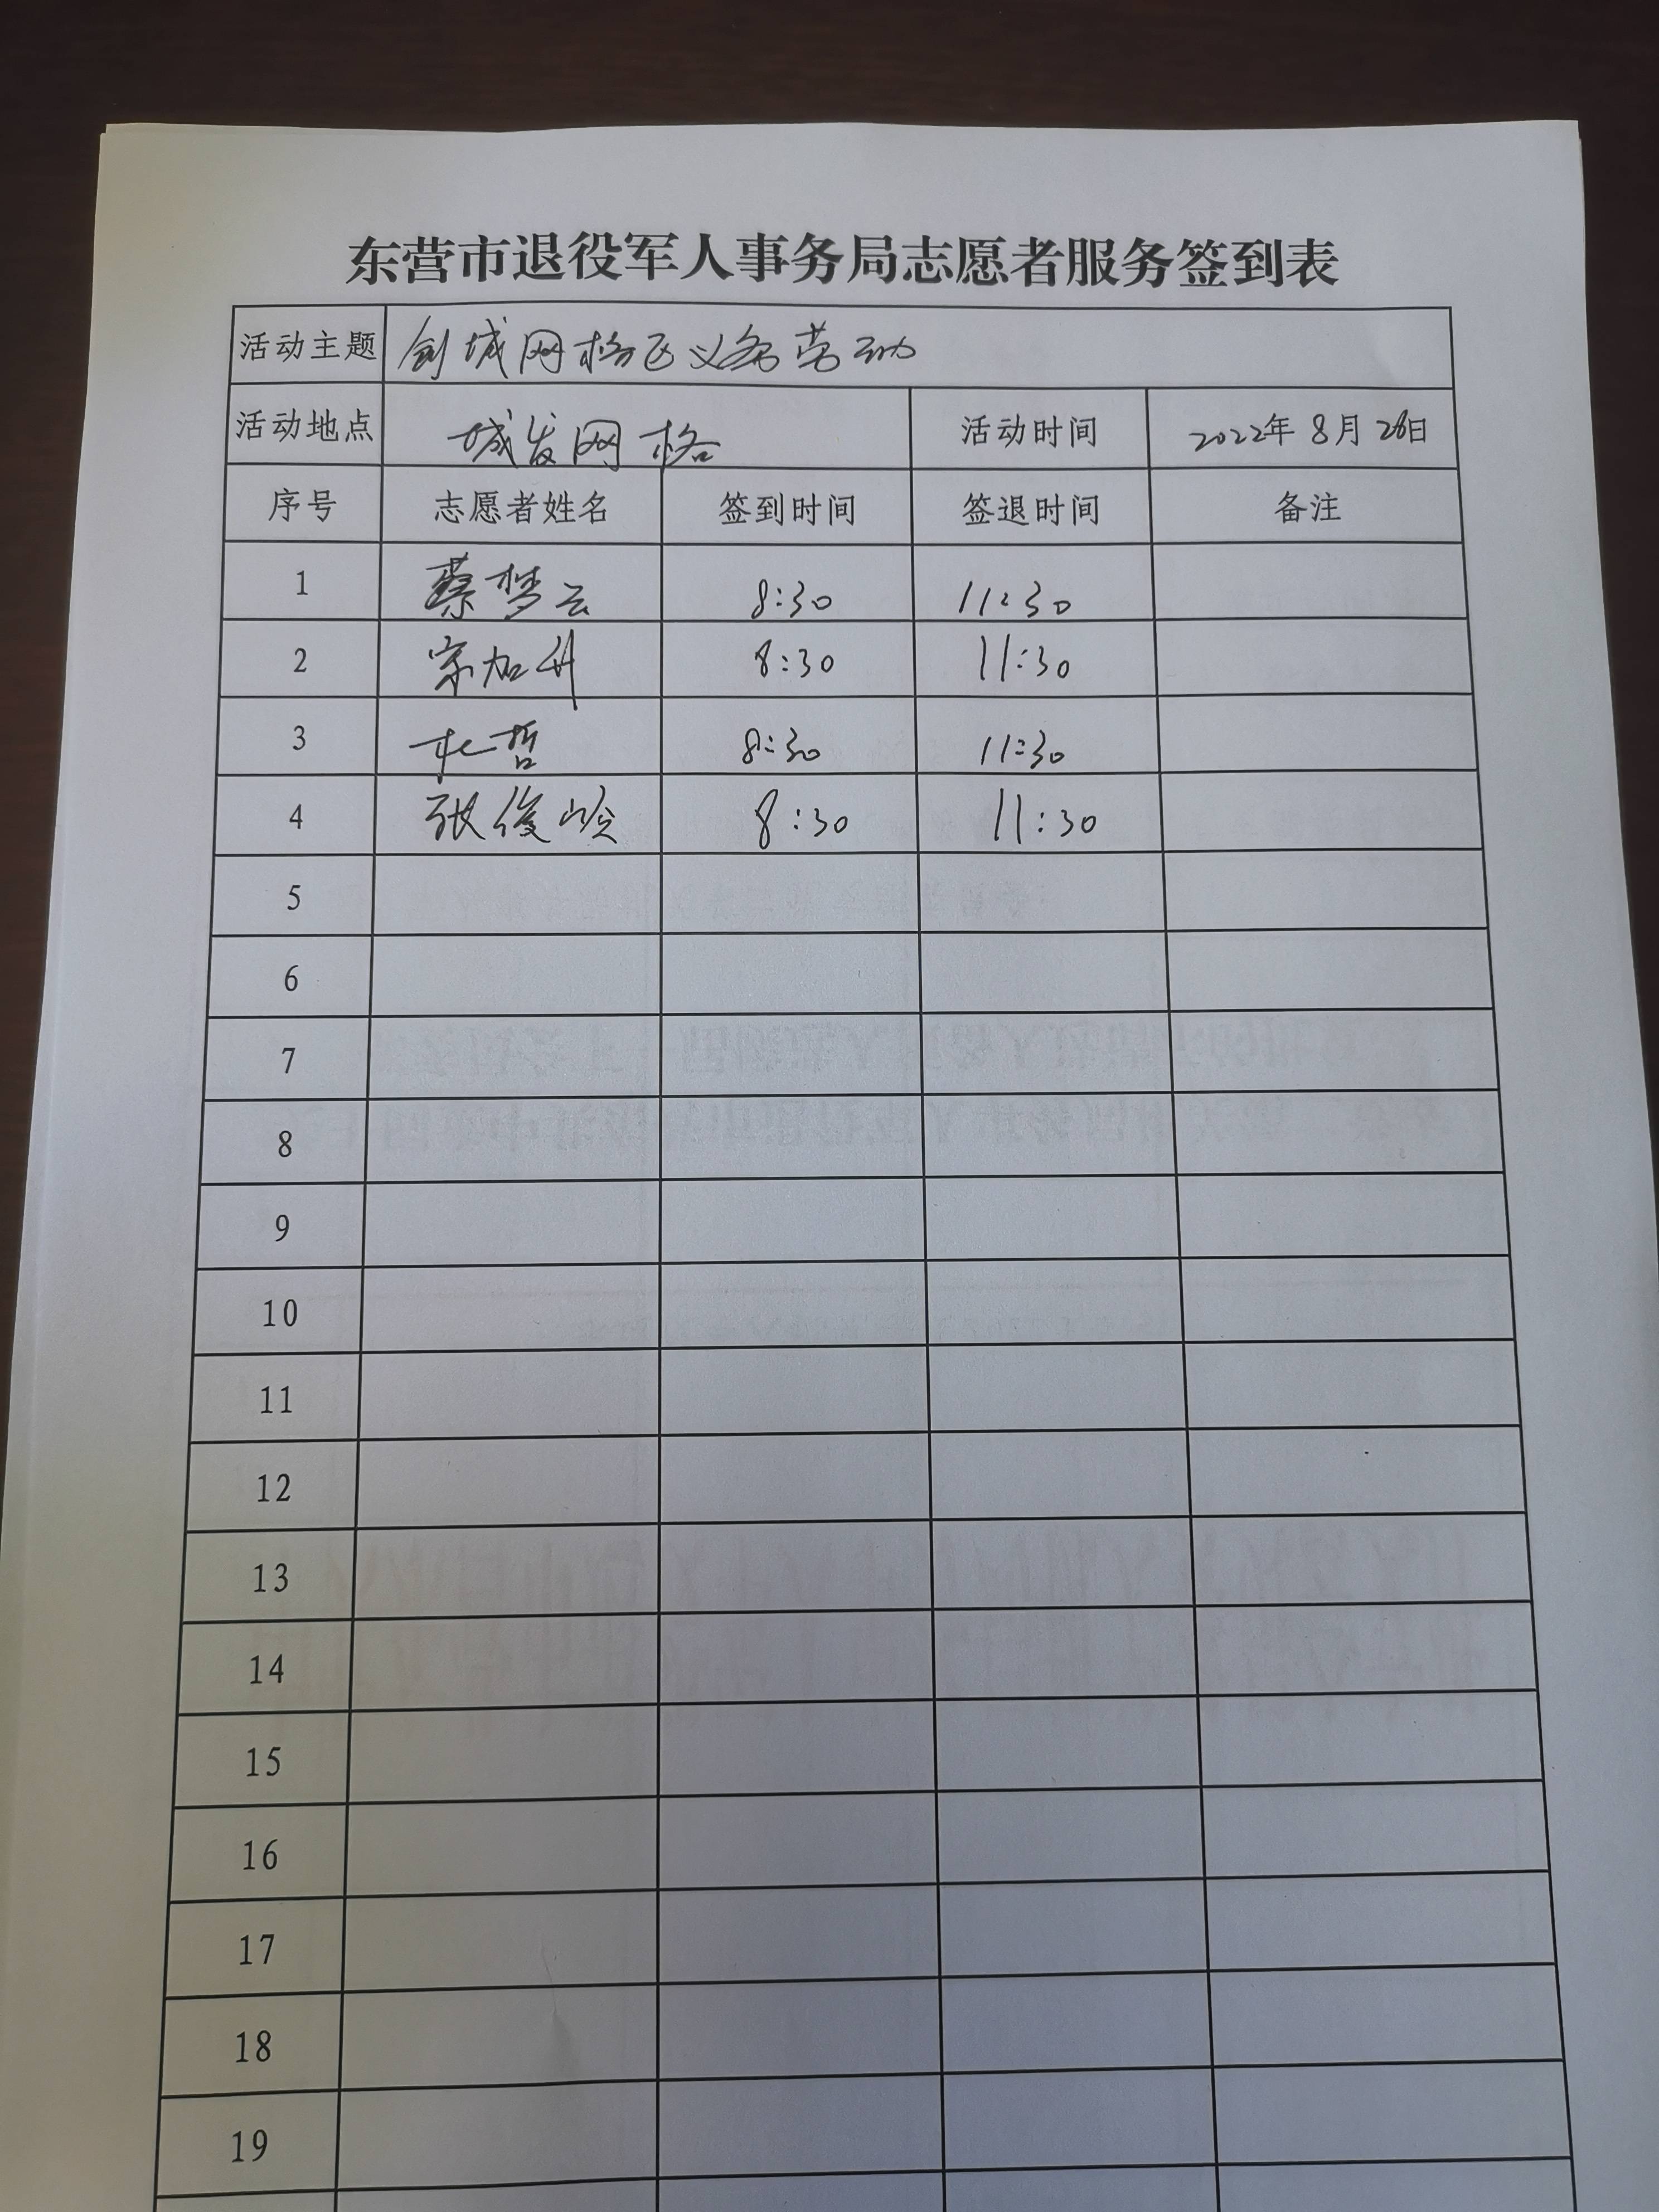 东营市退役军人事务局志愿者服务签到表
活动主题 创城网格区义务劳动
活动地点 城发网格 活动时间 2022年8月26日
序号 志愿者姓名 签到时间 签退时间 备注
1 蔡梦云 8:30 11:30
2 宗加升 8:30 11:30
3 杜哲 8:30 11:30
4 张俊峻 8:30 11:30
5
6
7
8
9
10
11
12
13
14
15
16
17
18
19